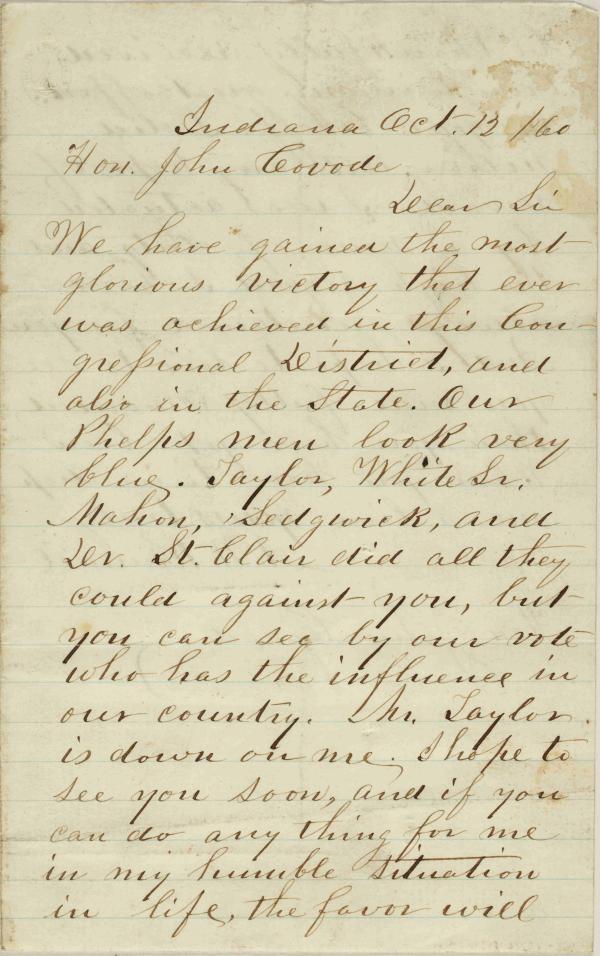 Indiana Oct. 12 /60
Hon. John Covode
Dear Sir
We have gained the most
glorious victory that ever
was achieved in this Con-
gressional District, and
also in the State. Our
Phelps men look very
blue. Taylor, White Sr.
Mahon, Sedgwick, and
Dr. St. Clair did all they
could against you, but
you can see by our vote
who has the influence in
our country. Mr. Taylor
is down on me. I hope to
see you soon, and if you
can do any thing for me
in my humble situation
in life, the favor will